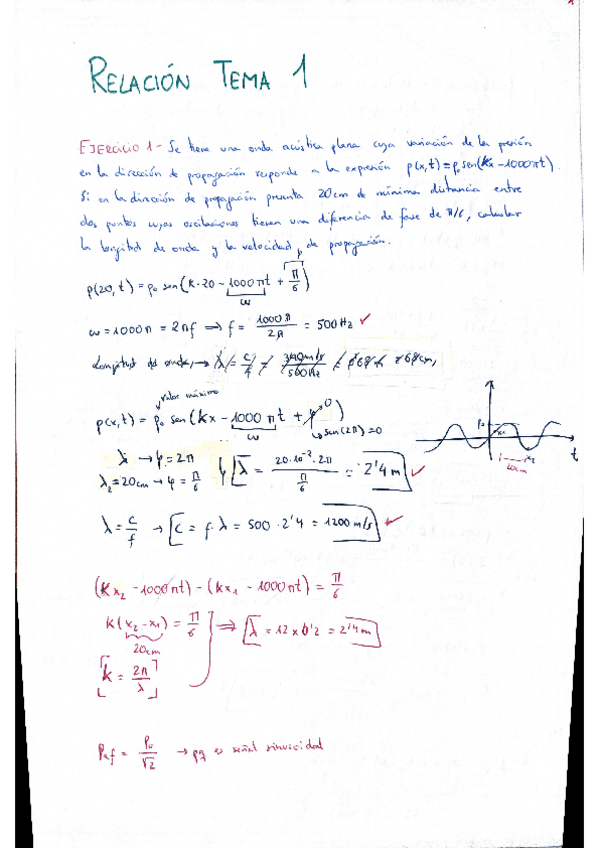 RELACIÓN TEMA 1
EJERCICIO 1- Se tiene una onda acústica plana cuya variación de la presión
en la dirección de propagación responde a la expresión p(x,t)=p₀sen(Kx-1000πt).
Si en la dirección de propagación presenta 20cm de mínima distancia entre
dos puntos cuyas oscilaciones tienen una diferencia de fase de π/6, calcular
la longitud de onda y la velocidad de propagación.
p(20,t) = p₀ sen(K·20 - 1000πt + π/6)
ω
ω = 1000π = 2πf ⇒ f = 1000π/2π = 500Hz ✓
Longitud de onda → λ = c/f = 340m/s / 500Hz = 0'68 = 68cm
valor máximo
p(x,t) = p₀ sen(Kx - 1000πt + φ) 0
ω ↳ sen(2π)=0
λ → φ = 2π
λ₂=20cm → φ = π/6 λ = 20·10⁻²·2π / π/6 = 2'4m ✓
p₀
x₁ x₂ t
20cm
λ = c/f → c = f·λ = 500·2'4 = 1200m/s ✓
(Kx₂ - 1000πt) - (Kx₁ - 1000πt) = π/6
K(x₂ - x₁) = π/6 ⇒ λ = 12 x 0'2 = 2'4m
20cm
K = 2π/λ
Pef = P₀/√2 → pq es señal sinusoidal